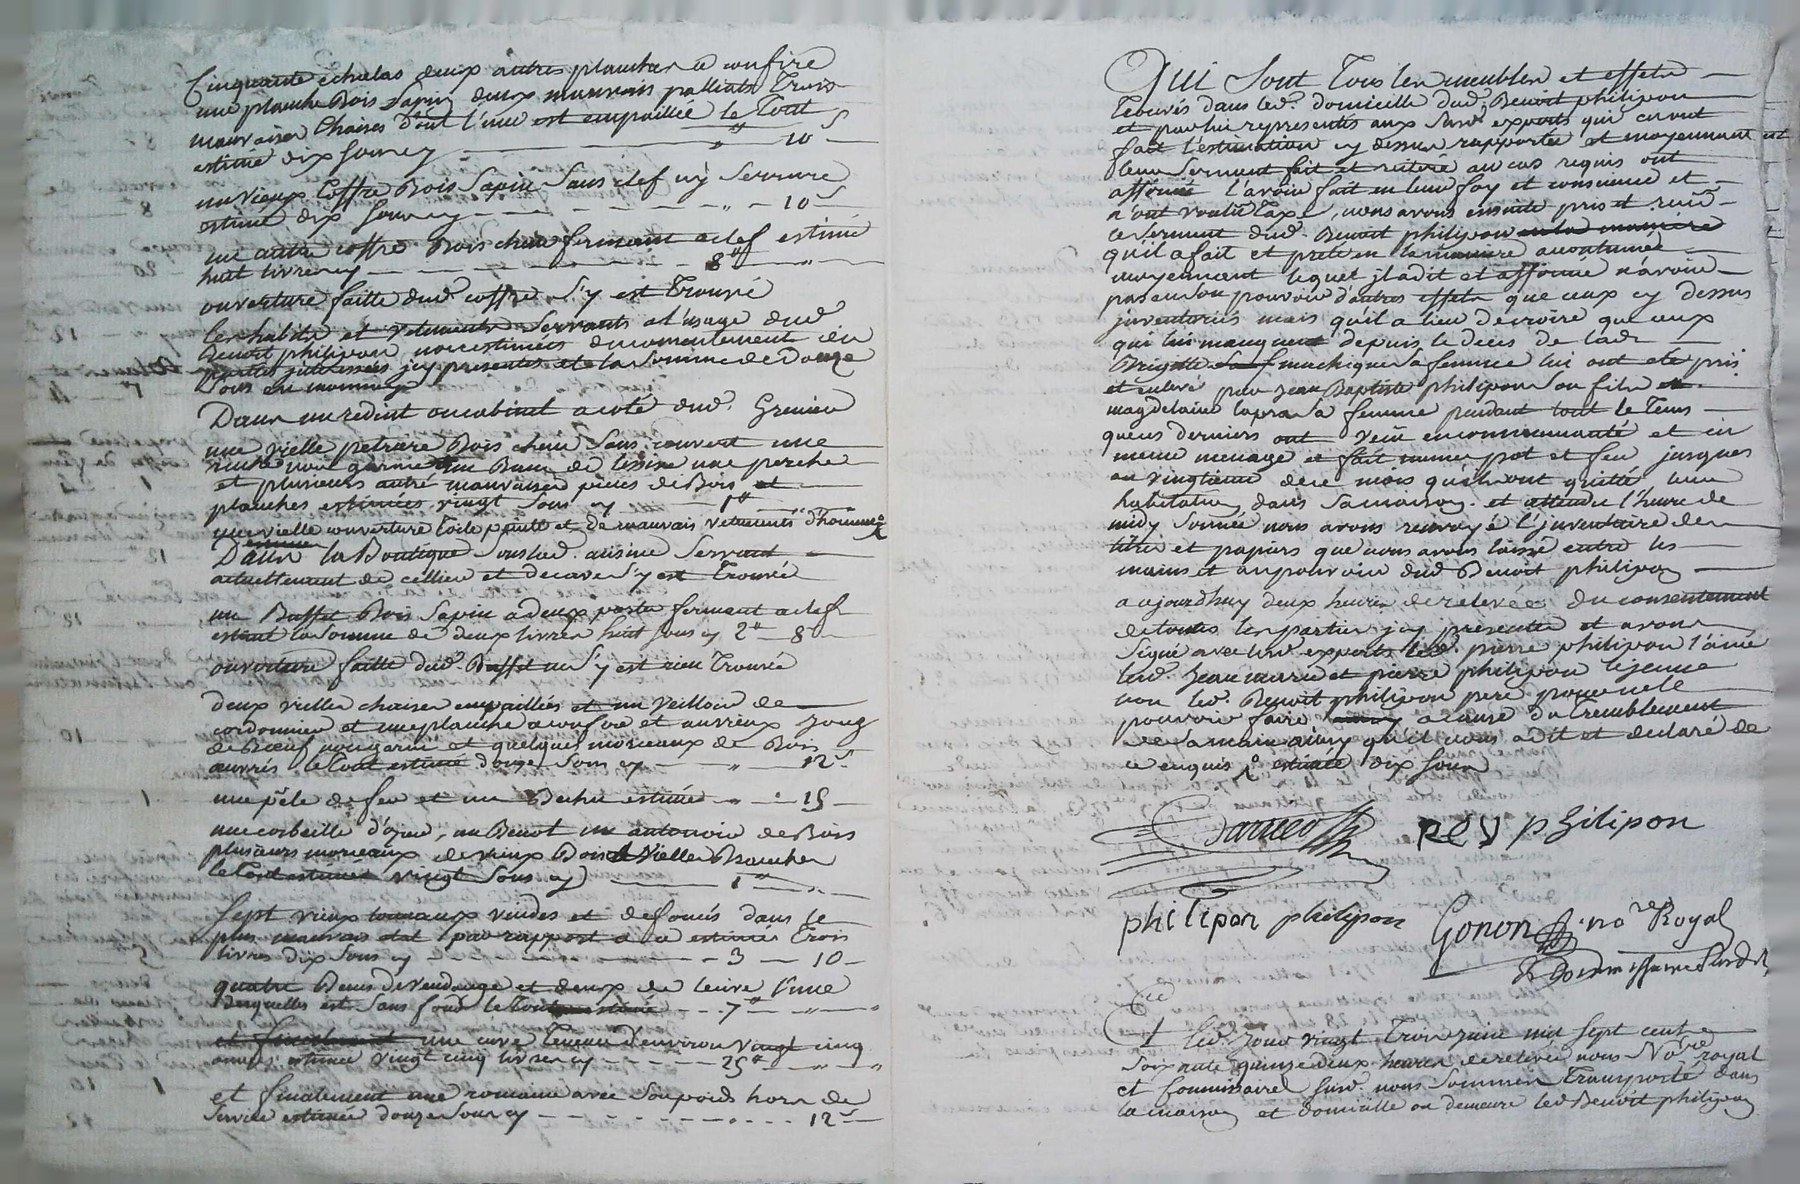 Cinquante echalas deux autres planches a confire
une planche Bois Sapin deux mauvais palliats Trois
mauvaises Chaises dont l'une est empaillée le Tout
estimé dix sous cy — " — 10 s
un vieux Coffre Bois Sapin sans clef ny serrure
estimé dix sous cy — " — 10 s
un autre coffre Bois chene fermant a clef estimé
huit livres cy — 8 " — "
ouverture faitte dud. coffre s'y est Trouvé
les habits et vetements servants a l'usage dud.
Benoit philipon non estimés du consentement des
parties icy presentes et la somme de Douze
sous en monnoye
Dans un reduit ou cabinet a coté dud. Grenier
une vielle petriere Bois chene sans couvert une
non garnie un Banc de une perche
et plusieurs autre mauvaises pieces de Bois et
planches estimées vingt sous cy — 1 "
une vielle couverture toile peinte et de mauvais vetements d'hommes
Dans la Boutique sous lad. cuisine servant
actuellement de cellier et de cave s'y est Trouvé
un Buffet Bois Sapin a deux portes fermant a clef
estimé la somme de deux livres huit sous cy 2 " — 8
ouverture faitte dud. Buffet ne s'y est rien Trouvé
deux vielles chaises empaillées et un veilloir de
cordonnier et une planche a confire et un vieux joug
de Boeuf non garni et quelques morceaux de Bois
ouvrés le Tout estimé douze sous cy — " — 12 s
une pêle de feu et un estimés " — 15
une corbeille d'ozier, un Benot un antonoir de Bois
plusieurs morceaux de vieux Bois et vielles Branches
le Tout estimé vingt sous cy — 1 " — "
Sept vieux tonneaux vuides et defoncés dans le
plus mauvais etat par rapport a ce estimés Trois
livres dix sous cy — 3 — 10
quatre Benes de vendange et deux de l'une
desquelles est sans fond le tout estimé — 7 " — "
et finalement une cuve Teneau d'environ vingt cinq
anées estimée vingt cinq livres cy — 25 " — "
et finalement une romaine avec son poids hors de
service estimée douze sous cy — 12 s
Qui sont Tous les meubles et effets
Trouvés dans led. domicille dud. Benoit philipon
et par lui representés aux susd. experts qui en ont
fait l'estimation cy dessus rapportée et moyennant
leur serment fait et reiteré au cas requis ont
affirmé l'avoir fait en leur foy et conscience et
n'ont voulu Taxe, nous avons ensuite pris et reçu
le serment dud. Benoit philipon en la maniere
qu'il a fait et preté en la maniere accoutumée
moyennant lequel il a dit et affirmé n'avoir
pas en son pouvoir d'autres effets que ceux cy dessus
inventoriés mais qu'il a lieu de croire que ceux
qui lui manquent depuis le deces de lad.
Brigitte muchique sa femme lui ont eté pris
et enlevé par Jean Baptiste philipon son fils et
magdelaine lapra sa femme pendant tout le Tems
que ces derniers ont vecû en communauté et en
meme menage et fait meme pot et feu jusques
au vingtieme de ce mois qu'ils ont quitté leur
habitation dans sa maison. et attendu l'heure de
midy sonnée nous avons renvoyé l'inventaire des
titres et papiers que nous avons laissé entre les
mains et au pouvoir dud. Benoit philipon
aujourdhuy deux heures de relevée du consentement
de toutes les parties icy presentes et avons
signé avec lesd. experts led. pierre philipon l'ainé
led. Jean marie et pierre philipon le jeune
non led. Benoit philipon pere pour ne le
pouvoir faire a cause du tremblement
de sa main ainsy qu'il nous a dit et declaré de
ce enquis estimés dix sous
Rey philipon
philipon philipon Gonon no.re Royal
Et led. jour vingt Trois juin mil sept cent
soixante quinze deux heures de relevée nous No.re royal
et Commissaire susd. nous sommes Transporté dans
la maison et domicille ou demeure led. Benoit philipon